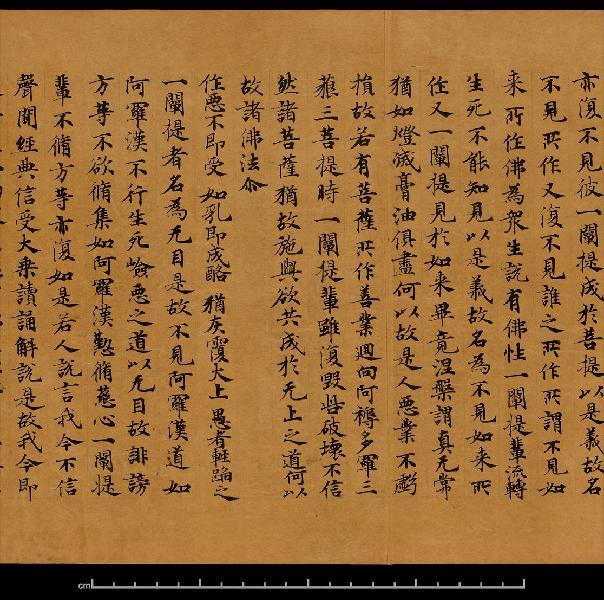 亦復不見彼一闡提成於菩提以是義故名
不見所作又復不見誰之所作所謂不見如
来所作佛為衆生說有佛性一闡提輩流轉
生死不能知見以是義故名為不見如来所
作又一闡提見於如来畢竟涅槃謂真无常
猶如燈滅膏油俱盡何以故是人惡業不虧
損故若有菩薩所作善業迴向阿耨多羅三
藐三菩提時一闡提輩雖復毀呰破壞不信
然諸菩薩猶故施與欲共成於无上之道何以
故諸佛法尒
作惡不即受 如乳即成酪 猶灰覆火上 愚者輕蹈之
一闡提者名為无目是故不見阿羅漢道如
阿羅漢不行生死嶮惡之道以无目故誹謗
方等不欲脩集如阿羅漢懃脩慈心一闡提
輩不脩方等亦復如是若人說言我今不信
聲聞經典信受大乗讀誦解說是故我今即